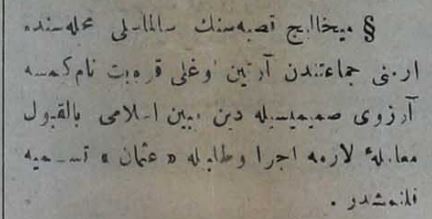 § میخالیج قصبه‌سنك سالماسلی محله‌سنده
ارمنی جماعتندن آرتین اوغلی قره‌بت نام كمسه
آرزوی صمیمیسیله دین مبین اسلامی بالقبول
معاملهٔ لازمه اجرا و طلبیله « عثمان » تسمیه
قلنمشدر .